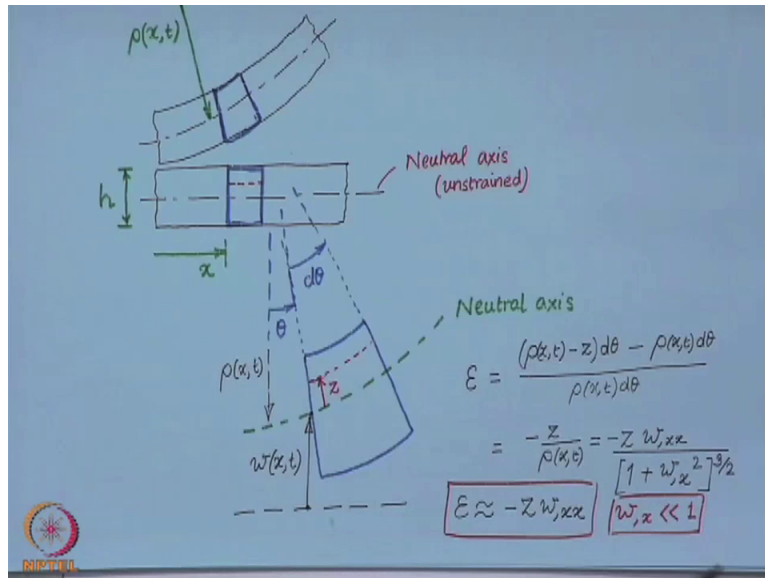 ρ(x,t)
Neutral axis
(unstrained)
h
x
dθ
θ
Neutral axis
ρ(x,t)
z
w(x,t)
ε = (ρ(x,t) - z) dθ - ρ(x,t) dθ / ρ(x,t) dθ
= -z / ρ(x,t) = -z w,xx / [1 + w,x²]^3/2
ε ≈ -z w,xx
w,x << 1
NPTEL